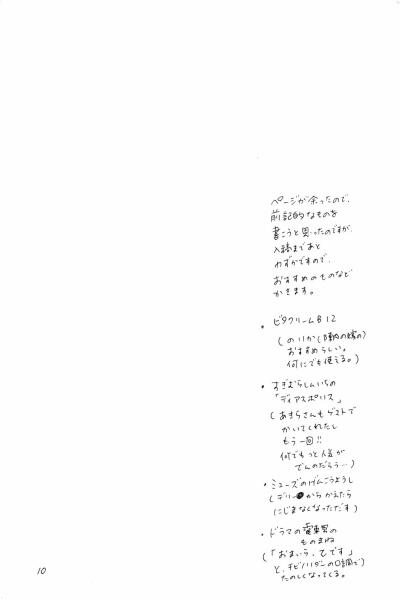 ページが余ったので、
前記的なものを
書こうと思ったのですが、
入稿まであと
わずかですので、
おすすめのものなど
かきます。
・ビタクリームB12
(のりか(陣内の嫁の)
おすすめらしい。
何にでも使える。)
・すぎむらしんいちの
「ディアスポリス」
(あきらさんもゲストで
かいてくれたし
もう一回!!
何でもっと人気が
でんのだろう…)
・ミューズのげんこうようし
(デリーターからかえたら
にじまなくなっただす)
・ドラマの電車男の
ものまね
(「おまいら、乙です」
と、チビノリダーの口調で)
たのしくなってくる。
10